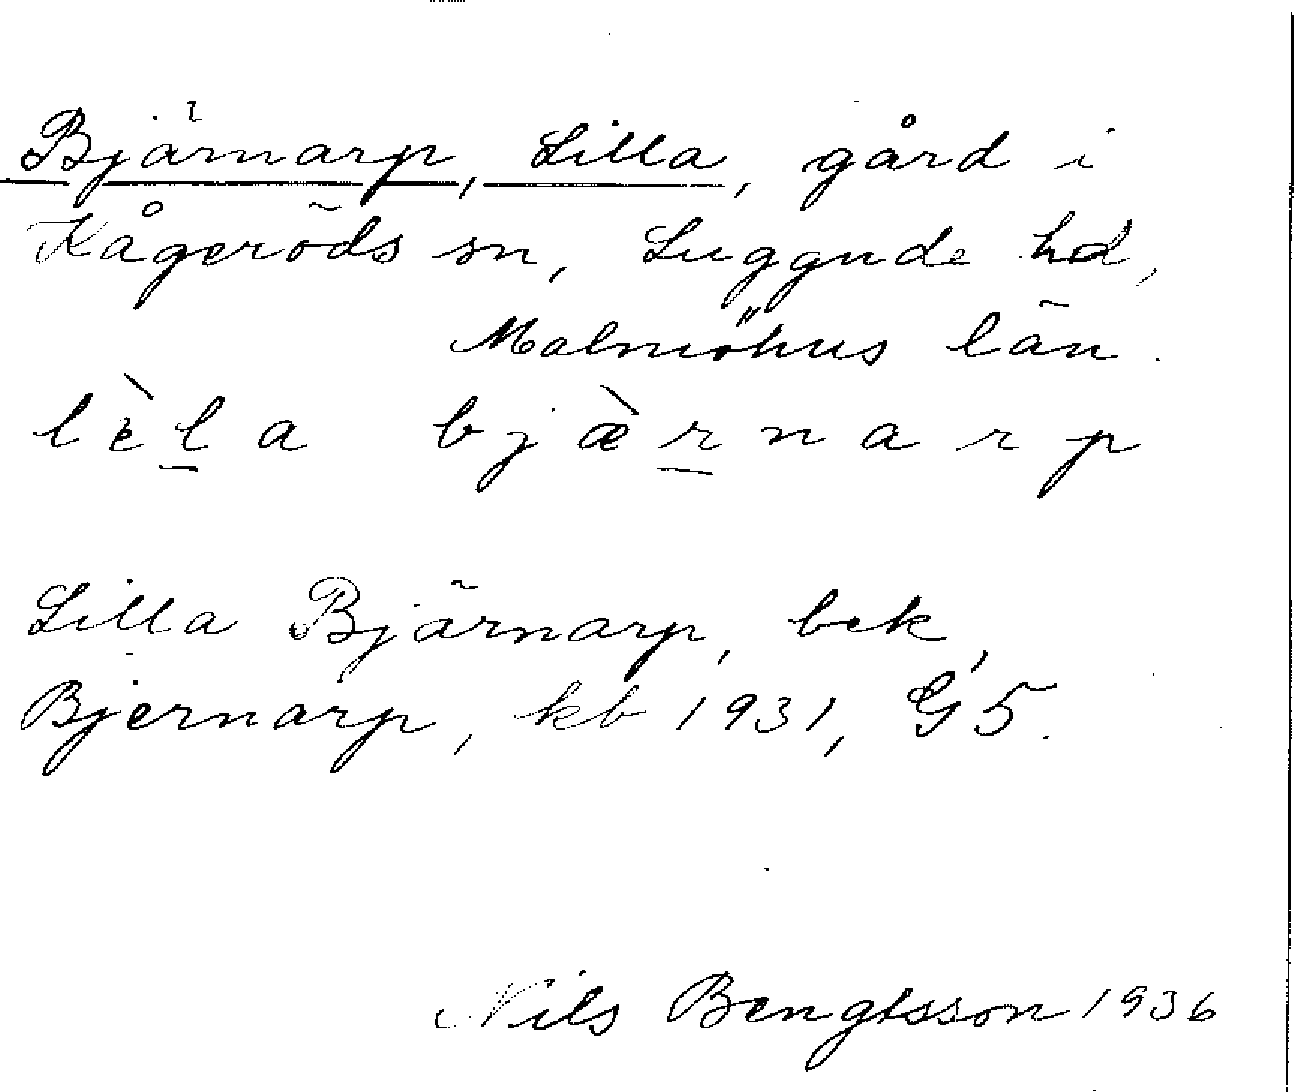 Bjärnarp, Lilla, gård i
Kågeröds sn, Luggude hd,
Malmöhus län.
lèl̲a bjæ̀r̲narp
Lilla Bjärnarp, bek,
Bjernarp, kb 1931, G5.
Nils Bengtsson 1936